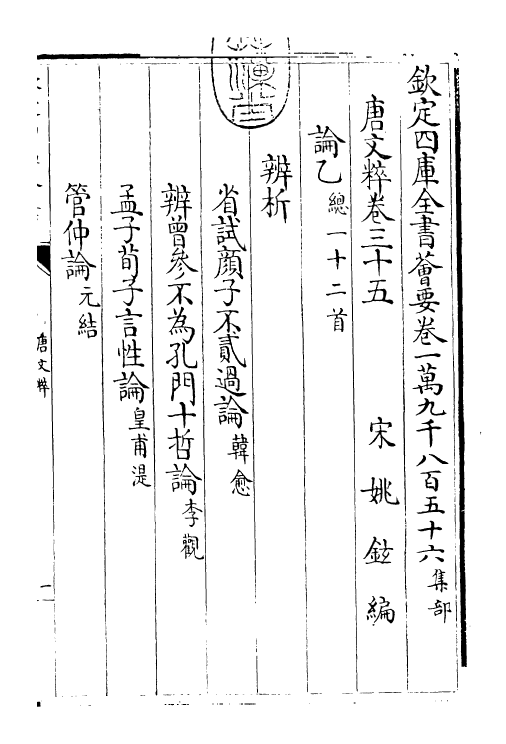 欽定四庫全書薈要卷一萬九千八百五十六集部
唐文粹卷三十五 宋姚鉉編
論乙總一十二首
辨析
省試顔子不貳過論韓愈
辨曾參不為孔門十哲論李觀
孟子荀子言性論皇甫湜
管仲論元結
唐文粹
一